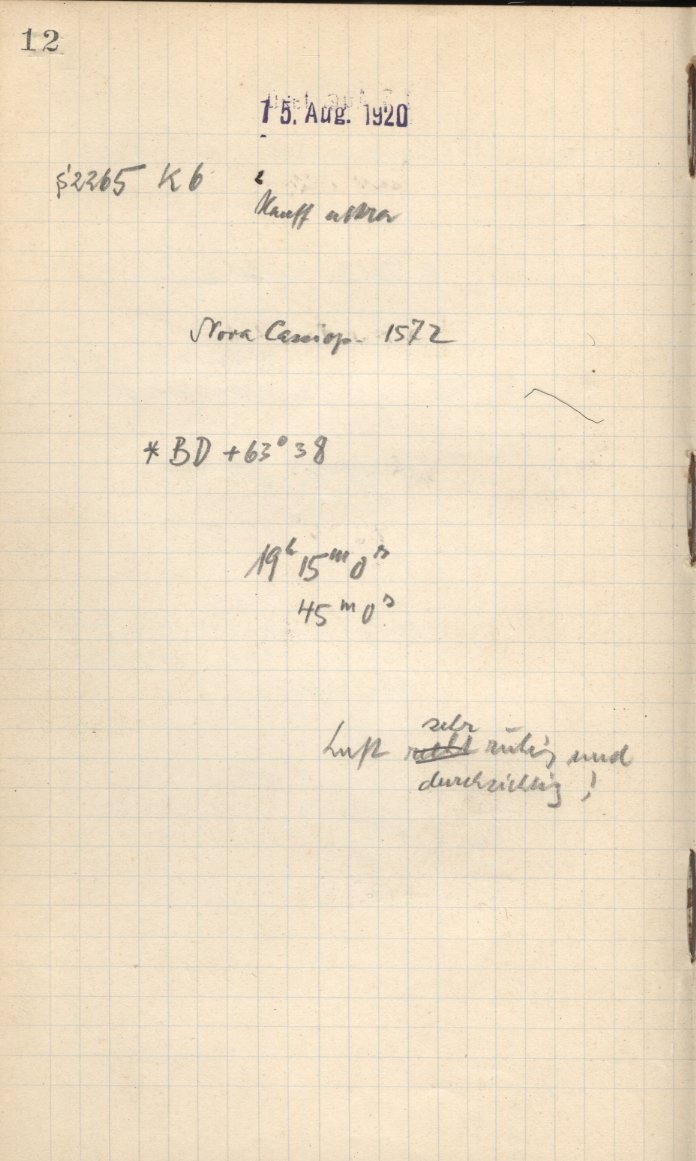 12
15. Aug. 1920
2265 K6
Hauff ultra
Nova Cassiop. 1572
* BD +63° 38
19h 15m 0s
45m 0s
sehr
Luft ruhig und
durchsichtig !